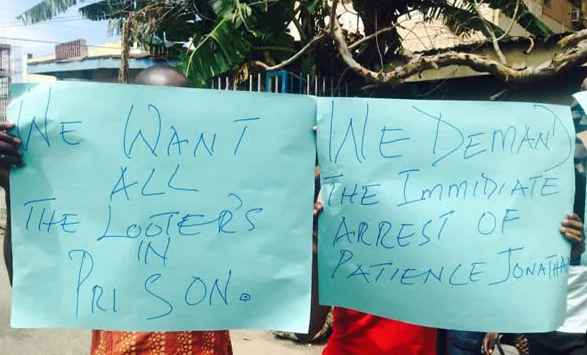 WE WANT
ALL
THE LOOTER'S
IN
PRISON.
WE DEMAND
THE IMMIDIATE
ARREST OF
PATIENCE JONATHAN